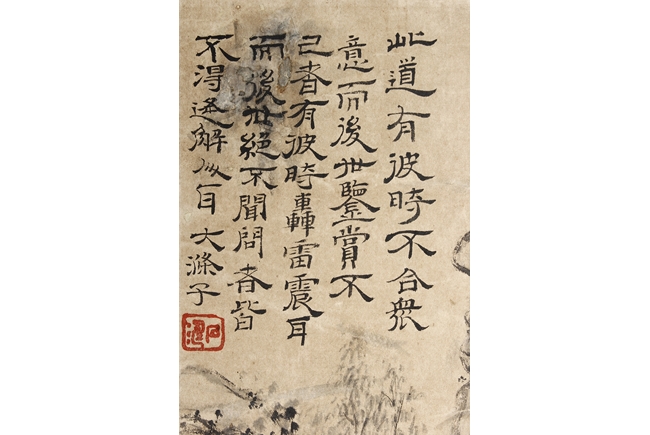 此道有彼時不合衆
意而後世鑒賞不
已者有彼時轟雷震耳
而後世絕不聞問者皆
不得逢解人耳大滌子